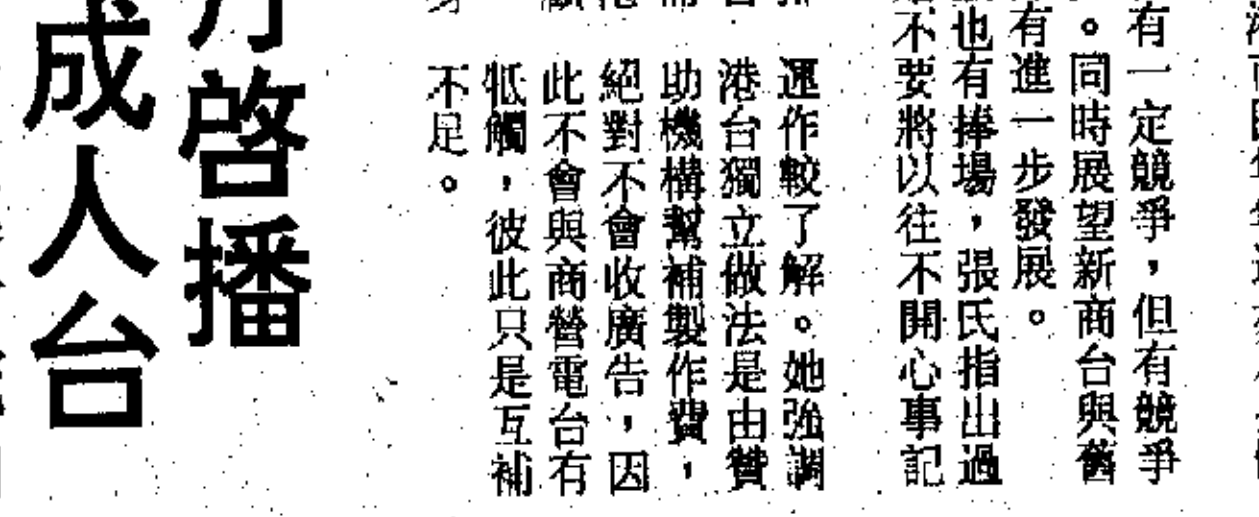 有一定競爭，但有競爭
。同時展望新商台與舊
有進一步發展。
也有捧場，張氏指出過
不要將以往不開心事記
運作較了解。她強調
港台獨立做法是由贊
助機構幫補製作費，
絕對不會收廣告，因
此不會與商營電台有
牴觸，彼此只是互補
不足。
月啓播
成人台